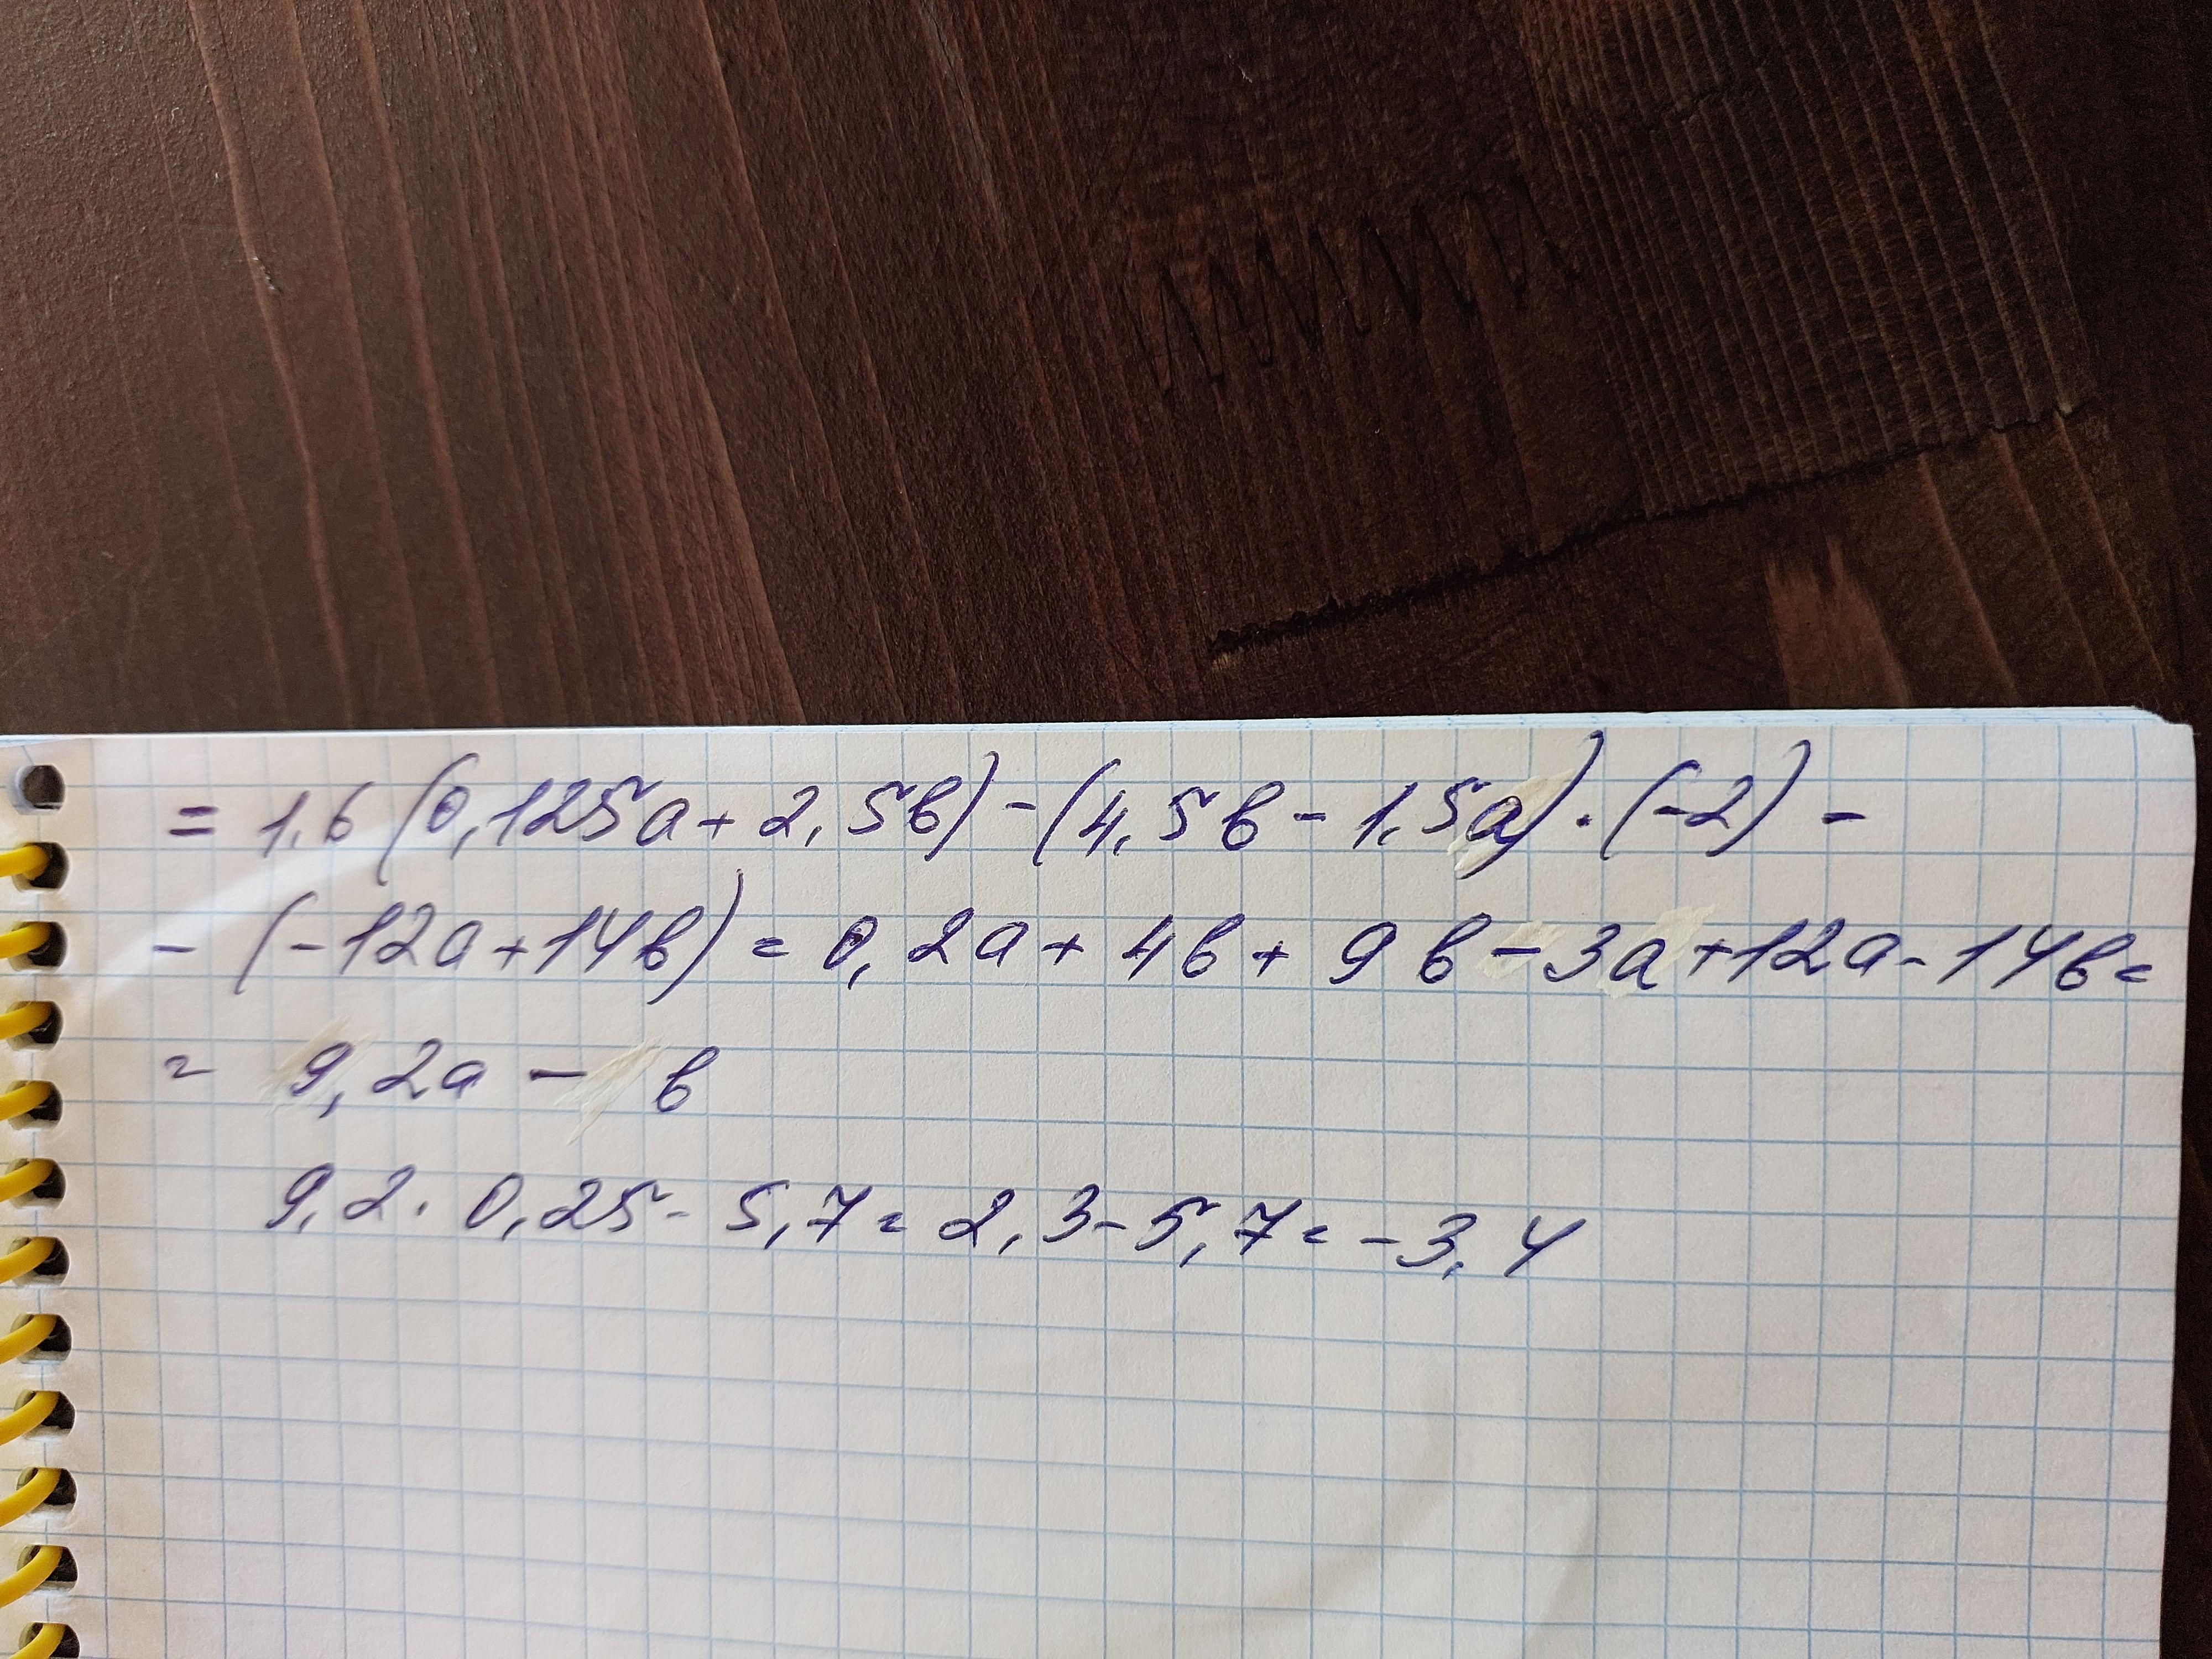 = 1,6 (0,125a + 2,5в) - (4,5в - 1,5a) · (-2) -
- (-12a + 14в) = 0,2a + 4в + 9в - 3a + 12a - 14в =
= 9,2a - в
9,2 · 0,25 - 5,7 = 2,3 - 5,7 = -3,4